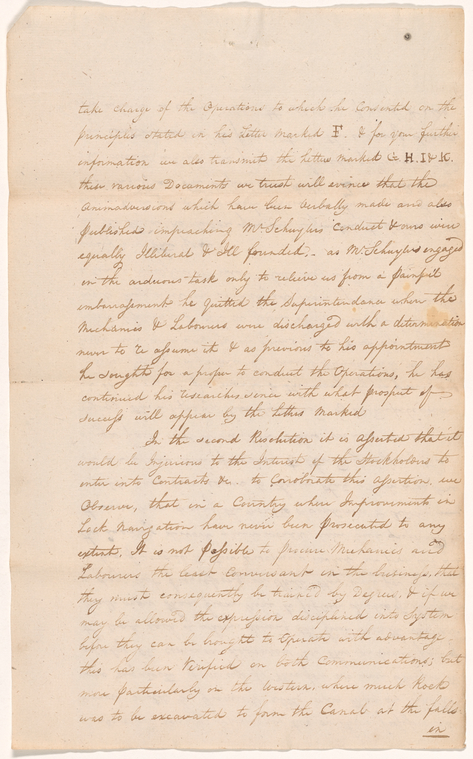 take charge of the Operations to which he Consented on the
principles stated in his Letter marked F. & for your further
information we also transmit the letters marked G H. I & K.
these various Documents we trust will evince that the
animadversions which have been Verbally made and also
published impeaching Mr Schuylers Conduct & ours were
equally Illiberal & Ill founded,- as Mr Schuyler engaged
in the arduous task only to relieve us from a painful
embarrassment he quitted the Superintendance when the
Mechanics & Labourers were discharged with a determination
never to re assume it & as previous to his appointment
he sought for a person to conduct the Operations, he has
continued his researches since with what prospect of
success will appear by the letters marked
In the second Resolution it is asserted that it
would be Injurious to the Interest of the Stockholders to
enter into Contracts &c. to Corroborate this assertion, we
Observe, that in a Country where Improvements in
Lock Navigation have never been prosecuted to any
extent, It is not possible to procure Mechanics and
Labourers the least Conversant in the business, that
they must consequently be trained by Degrees, & if we
may be allowed the expression disciplined into System
before they can be brought to Operate with advantage.
this has been Verified on both Communications; but
more particularly on the Western, where much Rock
was to be excavated to form the Canal at the falls.
in